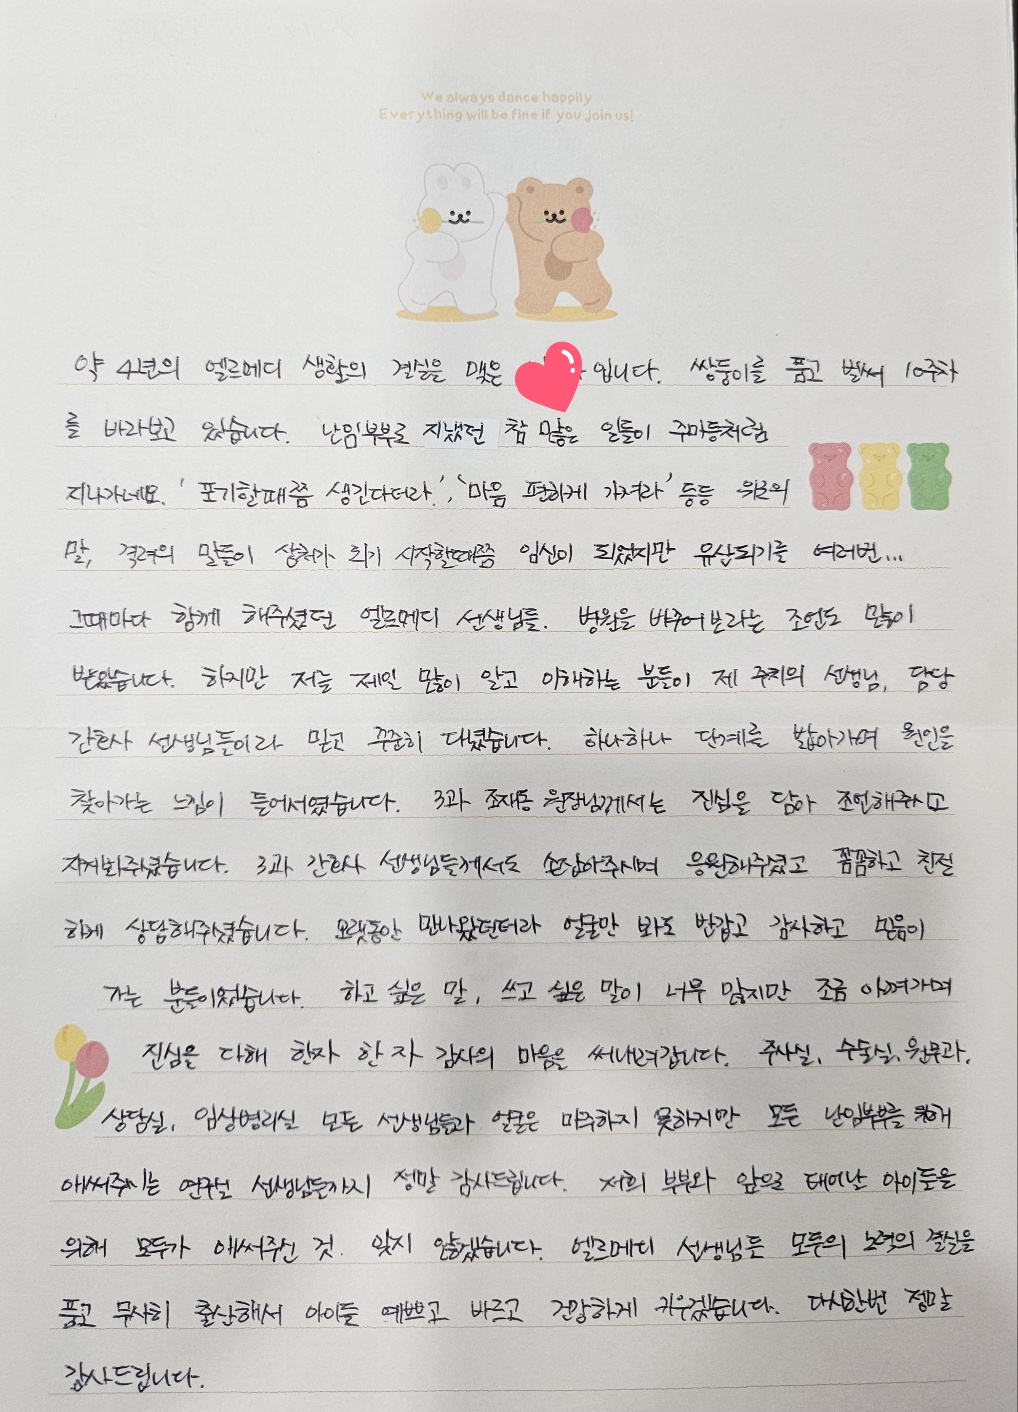 We always dance happily
Everything will be fine if you join us!
약 4년의 엘르메디 생활의 결실을 맺은 입니다. 쌍둥이를 품고 벌써 10주차
를 바라보고 있습니다. 난임부부로 지냈던 참 많은 일들이 주마등처럼
지나가네요. '포기할때쯤 생긴다더라.', '마음 편하게 가져라' 등등 위로의
말, 격려의 말들이 상처가 되기 시작할때쯤 임신이 되었지만 유산되기를 여러번...
그때마다 함께 해주셨던 엘르메디 선생님들. 병원을 바꾸어보라는 조언도 많이
받았습니다. 하지만 저를 제일 많이 알고 이해하는 분들이 제 주치의 선생님, 담당
간호사 선생님들이라 믿고 꾸준히 다녔습니다. 하나하나 단계를 밟아가며 원인을
찾아가는 느낌이 들어서였습니다. 3과 조재동 원장님께서는 진심을 담아 조언해주시고
지켜봐주셨습니다. 3과 간호사 선생님들께서도 손잡아주시며 응원해주셨고 꼼꼼하고 친절
하게 상담해주셨습니다. 오랫동안 만나왔던터라 얼굴만 봐도 반갑고 감사하고 믿음이
가는 분들이었습니다. 하고 싶은 말, 쓰고 싶은 말이 너무 많지만 조금 아껴가며
진심을 다해 한자 한자 감사의 마음을 써내려갑니다. 주사실, 수술실, 원무과,
상담실, 임상병리실 모든 선생님들과 얼굴은 마주하지 못하지만 모든 난임부부를 위해
애써주시는 연구실 선생님들까지 정말 감사드립니다. 저희 부부와 앞으로 태어날 아이들을
위해 모두가 애써주신 것. 잊지 않겠습니다. 엘르메디 선생님들 모두의 노력의 결실을
품고 무사히 출산해서 아이들 예쁘고 바르고 건강하게 키우겠습니다. 다시한번 정말
감사드립니다.